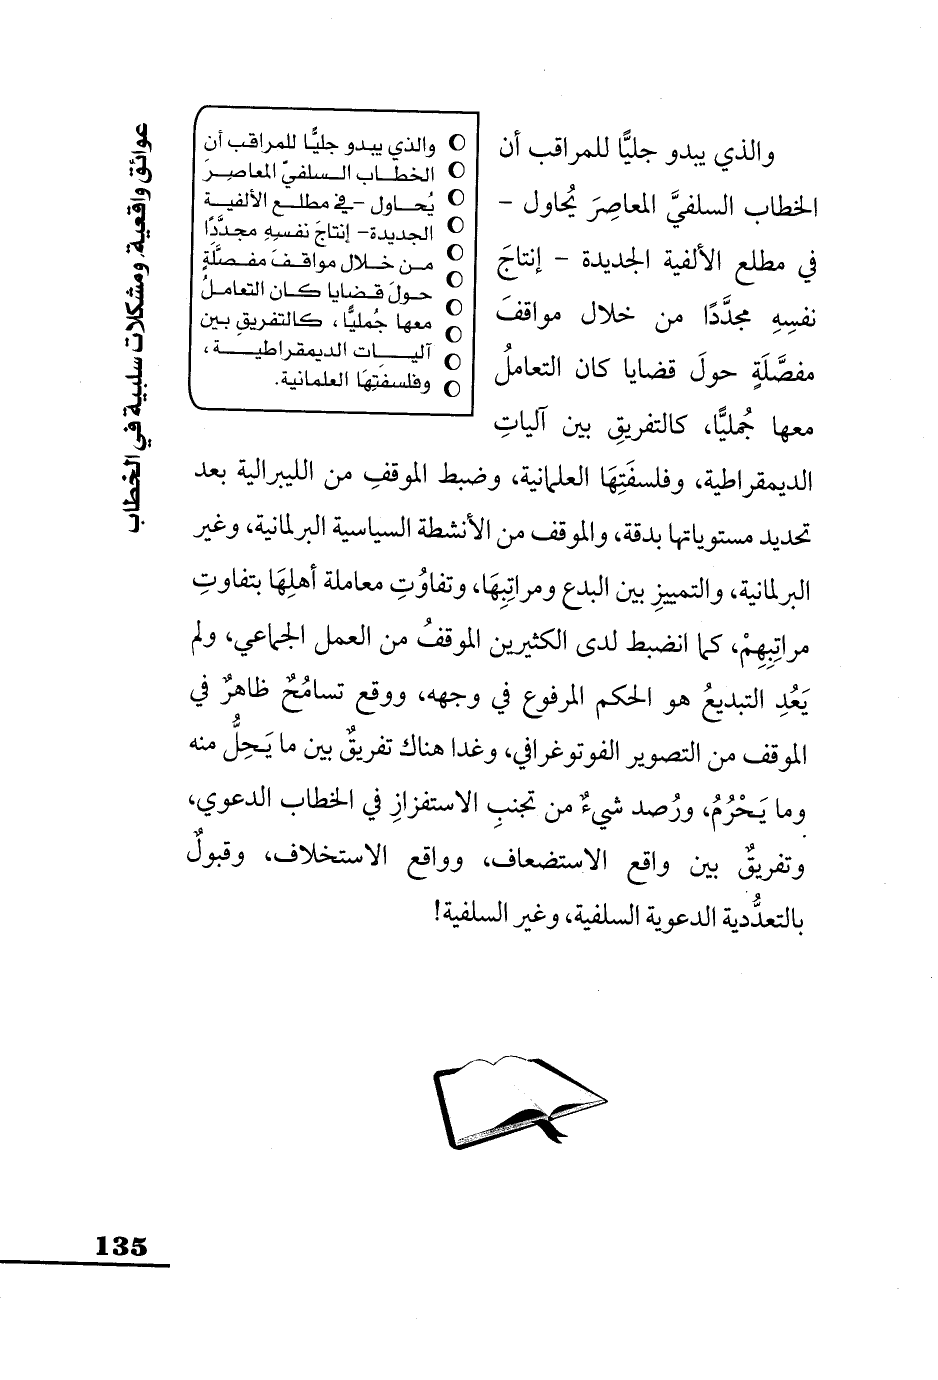 عوائق واقعية، ومشكلات سلبية في الخطاب
والذي يبدو جليًّا للمراقب أن
الخطاب السلفيَّ المعاصِرَ يُحاول -
في مطلع الألفية الجديدة - إنتاجَ
نفسِهِ مجدَّدًا من خلال مواقفَ
مفصَّلَةٍ حولَ قضايا كان التعاملُ
معها جُمليًّا، كالتفريقِ بين آلياتِ
الديمقراطية، وفلسفَتِهَا العلمانية، وضبط الموقفِ من الليبرالية بعد
تحديد مستوياتها بدقة، والموقف من الأنشطة السياسية البرلمانية، وغير
البرلمانية، والتمييزِ بين البدع ومراتِبِهَا، وتفاوُتِ معاملة أهلِهَا بتفاوتِ
مراتِبِهِمْ، كما انضبط لدى الكثيرين الموقفُ من العمل الجماعي، ولم
يَعُدِ التبديعُ هو الحكم المرفوع في وجهه، ووقع تسامُحٌ ظاهرٌ في
الموقف من التصوير الفوتوغرافي، وغدا هناك تفريقٌ بين ما يَحِلُّ منه
وما يَحْرُمُ، ورُصد شيءٌ من تجنبِ الاستفزازِ في الخطاب الدعوي،
وتفريقٌ بين واقع الاستضعاف، وواقع الاستخلاف، وقبولٌ
بالتعدُّدية الدعوية السلفية، وغير السلفية!
والذي يبدو جليًّا للمراقب أن
الخطاب السلفيّ المعاصِرَ
يُحاول -في مطلع الألفية
الجديدة- إنتاجَ نفسِهِ مجدَّدًا
من خلال مواقفَ مفصَّلَةٍ
حولَ قضايا كان التعاملُ
معها جُمليًّا، كالتفريقِ بين
آلياتِ الديمقراطية،
وفلسفتِهَا العلمانية.
135